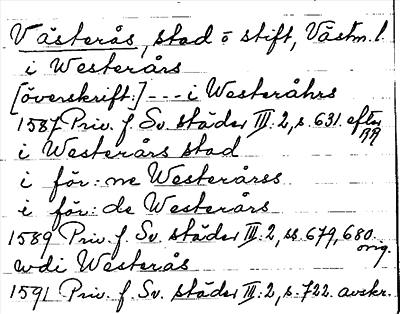 Västerås, stad o stift, Västm. l.
i Westerårs
[överskrift:] --- i Westeråhrs
1587 Priv. f. Sv. städer III: 2, s. 631. efter RR
i Westerårs stad
i för: ne Westerårss
i för: de Westerårs
1589 Priv. f. Sv. städer III: 2, ss. 679, 680. orig.
wdi Westerås
1591 Priv. f. Sv. städer III: 2, s. 722. avskr.